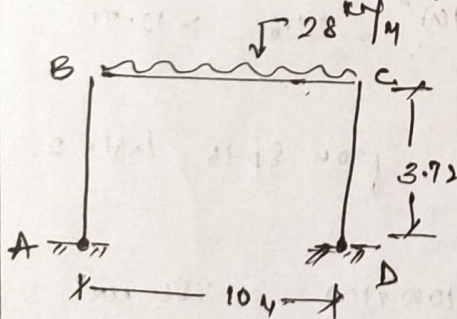 28 KN/M
B C
3.72
A D
10 M